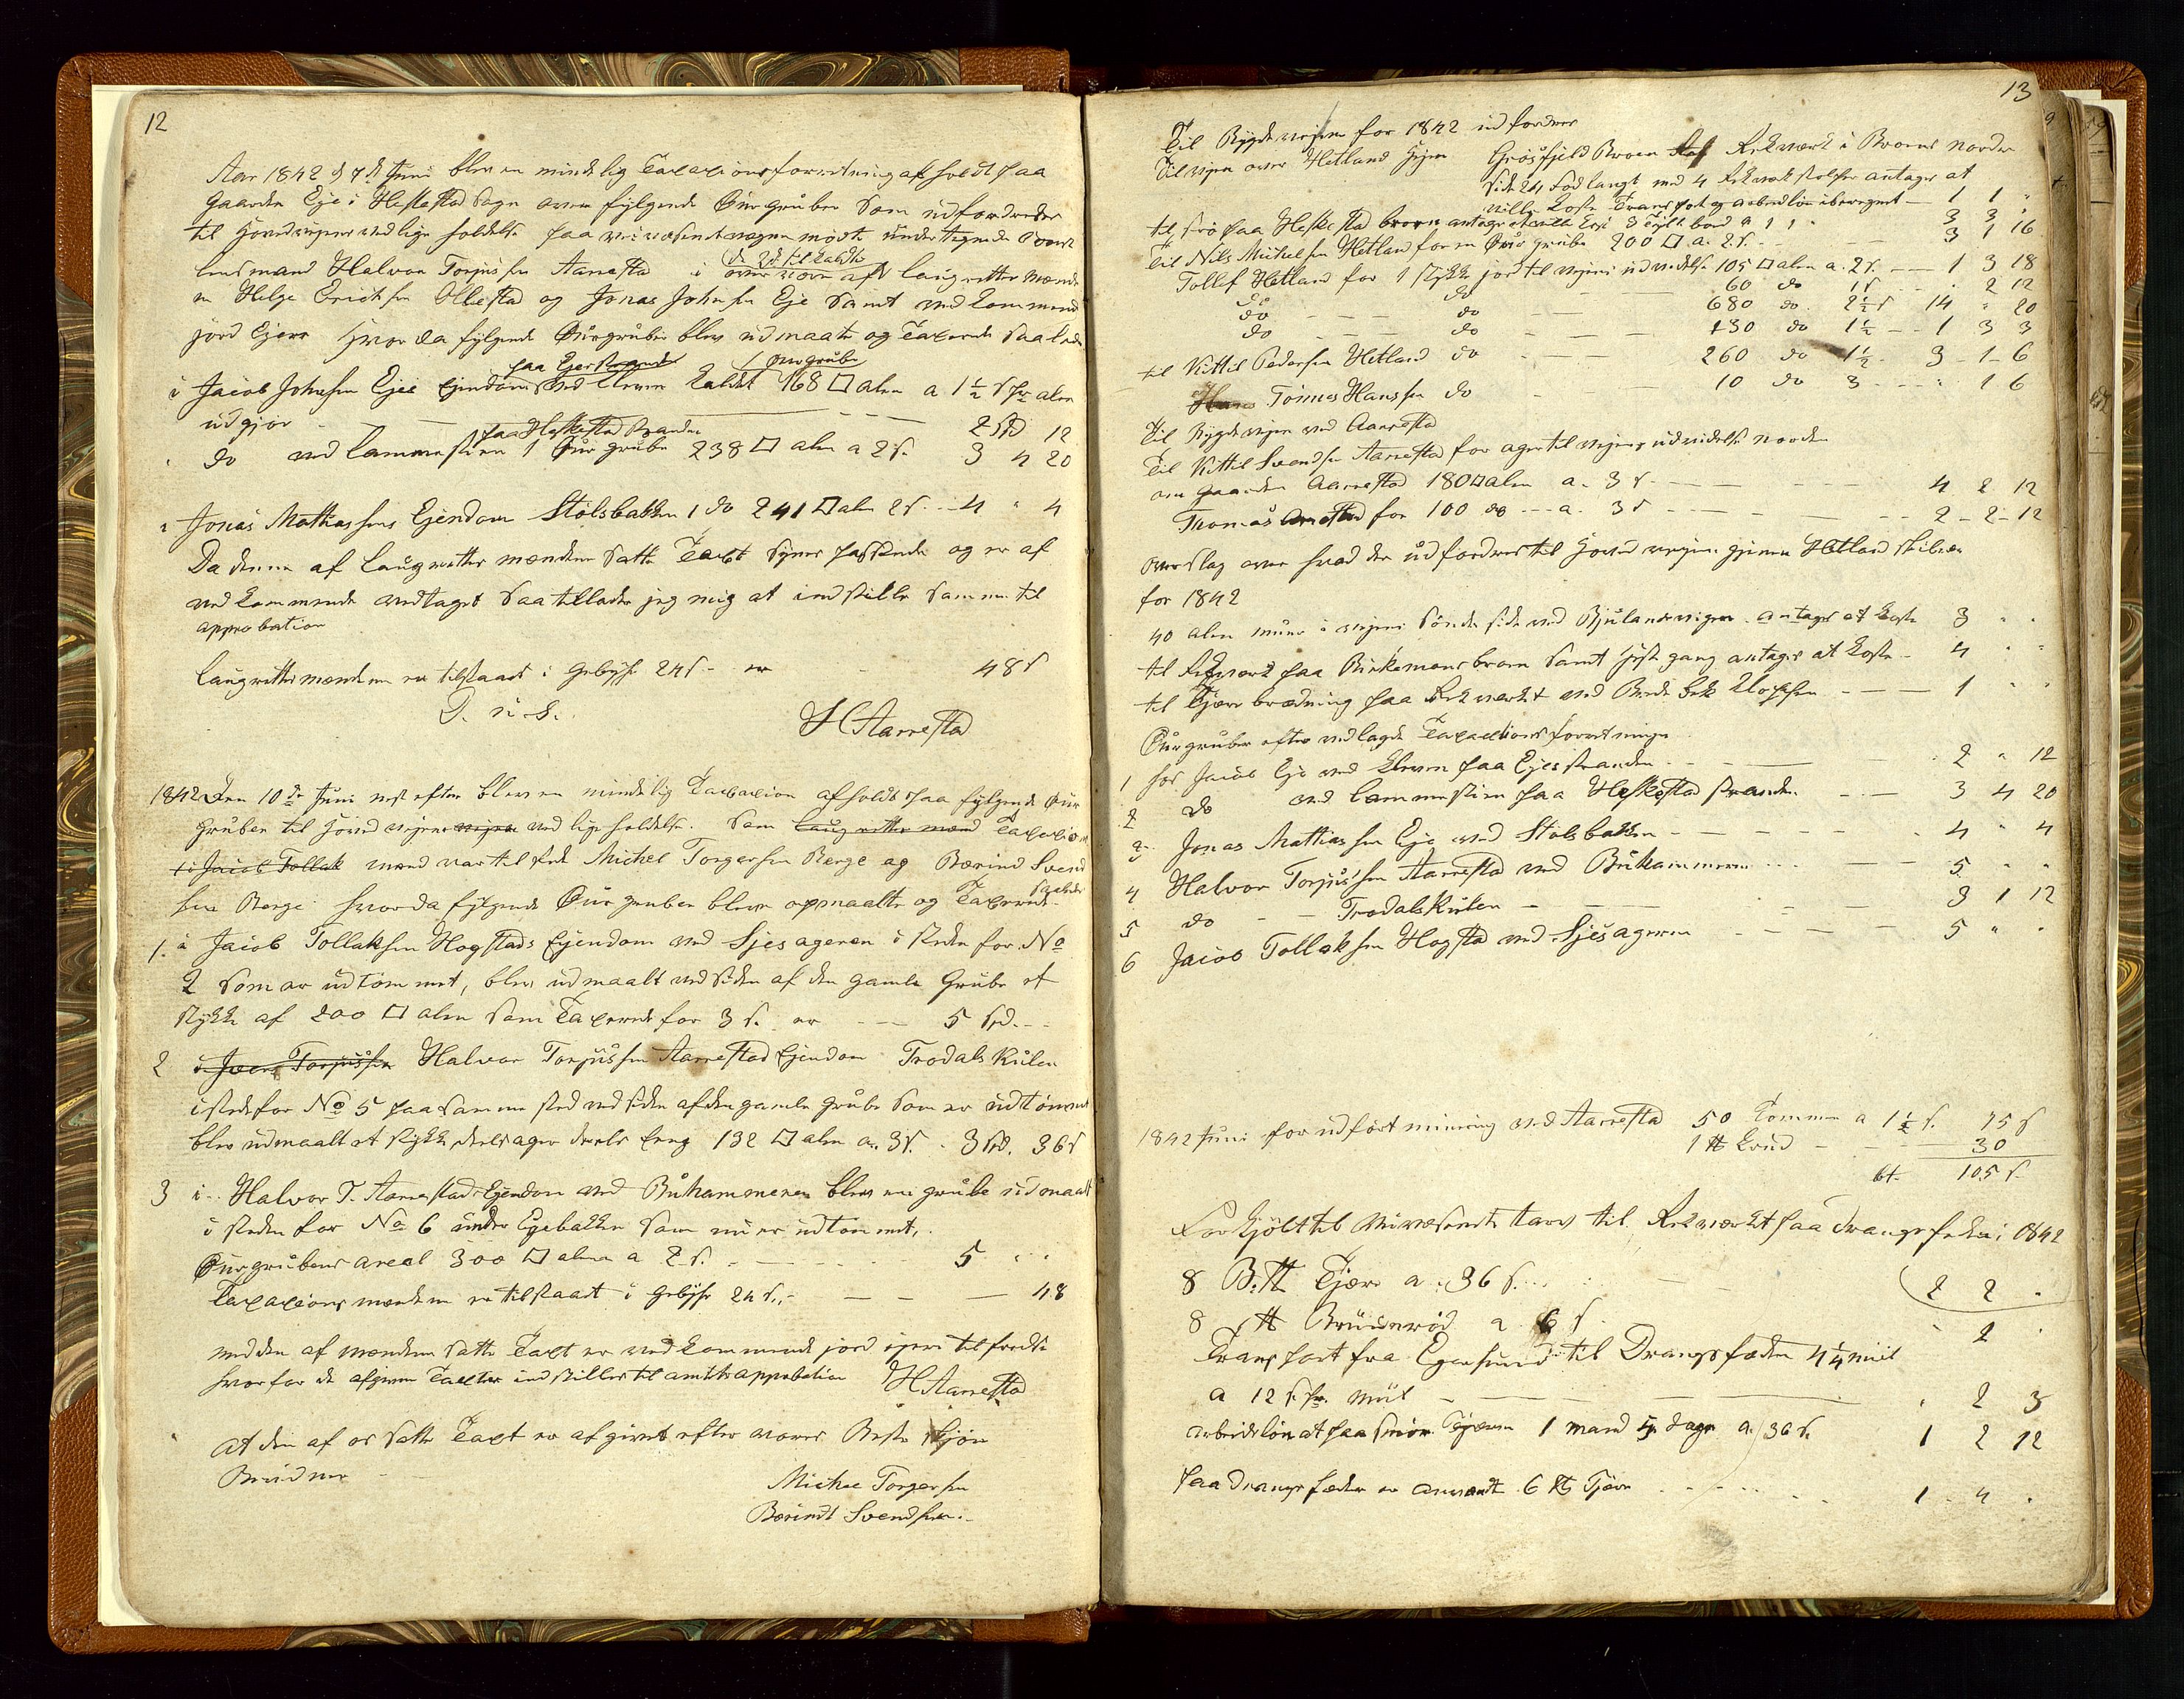 12
Aar 1842 d 7de Juni blev en mindelig Taxationsforretning afholdt paa
Gaarden Eje i Heskestad Sogn over følgende Øurgruber som udfordredes
til Hovedvejenes vedligeholdelse paa veivæsenets vegne mødte undertegnede
lensmand Halvor Torjussen Aarrestad i overvær af de 2de tilkaldte laugrettesmænd
Helge Erichsen Ollestad og Jonas Johnsen Eje samt vedkommende
jord Ejere hvor da følgende Øurgruber blev udmaalt og Taxerede saaledes
paa Ejestranden 1 Øurgrube
i Jacob Johnsen Ejes Ejendom ved Elven kaldet 168 □ alen a 1½ s pr alen
udgjør - - - 2 Spd 12
paa Heskestad Stranden
do ved Lammestien 1 Øurgrube 238 □ alen a 2 s. 3 4 20
i Jonas Mathiassens Ejendom Stølsbakken 1 do 241 □ alen 2 s - - 4 " 4
Da denne af Laugrettesmændene satte Taxt synes passende og er af
vedkommende vedtaget saa tillader jeg mig at indstille samme til
approbation
Laugrettesmændene er tilstaaet i Gebyhr 24 s - er - 48 s
D. u. s.
H Aarrestad
1842 Den 10de Juni nest efter blev en mindelig Taxation afholdt paa følgende Øur
Gruber til Hovedvejenes vejen vedligeholdelse. Som Laugrettesmænd Taxations
i Jacob Tollak mænd var tilstede Michel Torgersen Berge og Bærind Svend
sen Berge hvor da følgende Øurgruber bleve opmaalte og Taxerede saaledes
1. i Jacob Tollaksen Hogstads Ejendom ved Sjesageren i steden for No
2 som er udtømmet, blev udmaalt ved siden af den gamle Grube et
stykke af 200 □ alen som Taxerede for 3 s. er - - - 5 Spd. - -
2 i Jver Torjussen Halvor Torjussen Aarrestad Ejendom Trodalskulen
istedefor No 5 paa samme sted ved siden af den gamle grube som er udtømmet
blev udmaalt et stykke deels ager deels Eng 132 □ alen a. 3 s. - 3 Spd. 36 s
3 i Halvor T. Aarrestads Ejendom ved Buhammeren blev en grube udmaalt
i steden for No 6 under Egebakken som nu er udtømmet,
Øurgrubens areal 300 □ alen a 2 s. - - - 5 " "
Taxationsmændene er tilstaaet i Gebyhr 24 s. - - - 48
med den af mændene satte Taxt er vedkommende jord ejere tilfreds
hvorfor de afgivne Taxter indstilles til amtets approbation H Aarrestad
At den af os satte Taxt er afgivet efter vores Beste skjøn
Bevidner
Michel Torgersen
Bærindt Svendsen.
13
Til Bygdevejene for 1842 udfordres
Til vejen over Hetland Hejen Grøsfjeld Broen Rekværk i Broens nordre
side 24 fod langt med 4 Rekværkstolper antages at
ville koste Transport og arbeidsløn iberegnet - 1 1 "
til   paa Heskestad broen antages at ville   3 Tylt bord a 1 1 " 3 3 "
Til Nils Michelsen Hetland for en Øurgrube 200 □ a. 2 s. - - 3 1 16
Tollef Hetland for 1 stykke jord til vejens udvidelse 105 □ alen a. 2 s. - 1 3 18
do - - do - - 60 do 1 s - " 2 12
do - - do - - 680 do. 2½ s 14 " 20
do - - do - - 130 do 1½ - - 1 3 3
til Kittil Pedersen Hetland do - - 260 do 1½ - 3 - 1 - 6
Hans Tønnes Hanssen do - - 10 do 3 - - " 1 6
Til Bygdevejen ved Aarrestad
Til Kittil Svendsen Aarrestad for ager til vejens udvidelse norden
om gaarden Aarrestad 180 □ alen a. 3 s. - - - 4 2 12
Thomas Arrestad for 100 do - - a. 3 s - - - 2 - 2 - 12
overslag over hvad der udfordres til Hovedvejen gjennem Hetland skibrede
for 1842
40 alen muur i vejens søndre side ved Bjulandsvigen antages at koste 3 " "
til Rekværk paa Birkemoens broen samt   gang antages at koste - 4 " "
til Tjærebrædning paa Rekværket ved   Kloppen - - - 1 " "
Øurgruber efter vedlagde Taxationsforretninger
1 hos Jacob Eje ved Elven paa Ejestranden - - - 2 " 12
2 do ved Lammestien paa Heskestad Stranden - - 3 4 20
3 Jonas Mathiassen Eje ved Stølsbakken - - - 4 " 4
4 Halvor Torjussen Aarrestad ved Buhammeren - - - 5 " "
5 do - - Trodalskulen - - - 3 1 12
6 Jacob Tollaksen Hogstad ved Sjesageren - - - 5 " "
1842 Juni for udført minering ved Aarrestad 50 Tommer a 1½ s. 75 s
1 ℔ Krud - - 30
bt. 105 s.
Forskjøllt til Veivæsenets tarv til Rekværket paa Drangsfeden i 1842
8 B.℔ Tjære a. 36 s. - - 2 2 "
8 ℔ Bruunrød a 6 s. " 2 "
Transport fra Egersund til Drangsfeden 4¼ miil
a 12 s. pr. miil - - - " 2 3
arbeidsløn at paa smøre Tjæren 1 mand 5 dage a. 36 s. 1 2 12
paa Drangsfeden er anvendt 6 ℔ Tjære - - - 1 - 4 "